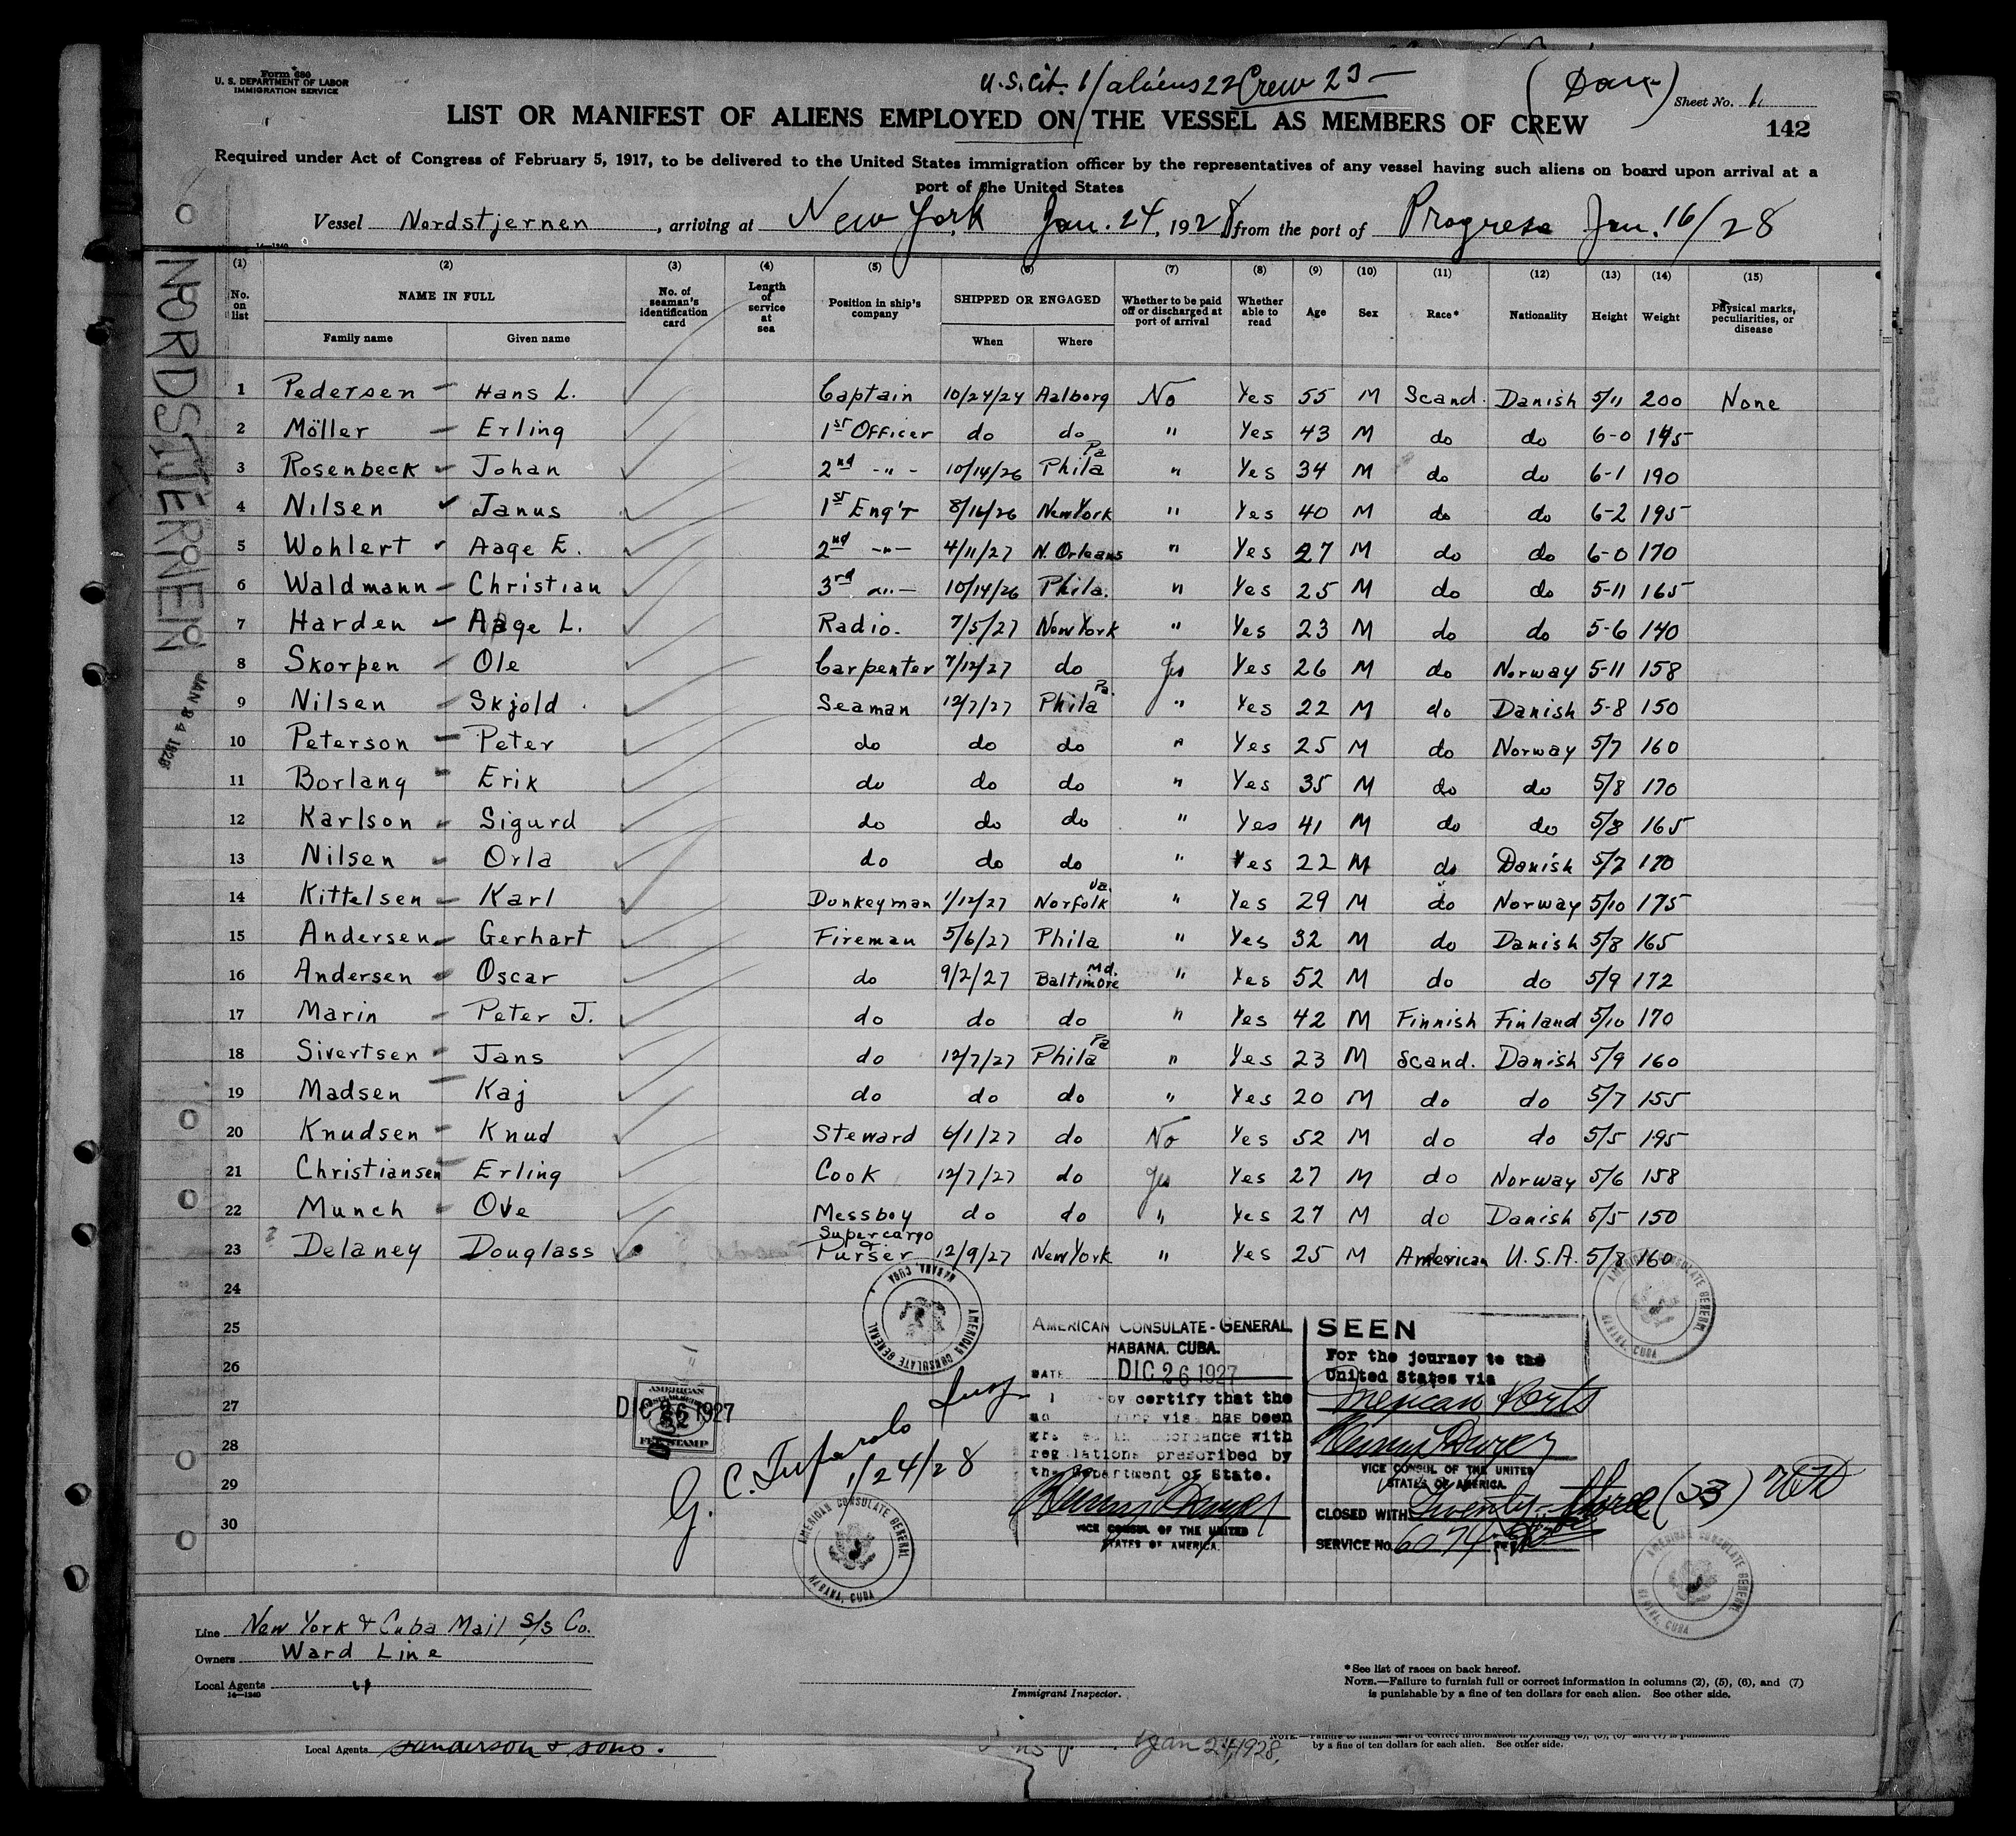 Form 680
U. S. DEPARTMENT OF LABOR
IMMIGRATION SERVICE
U.S. Cit. 1/aliens 22 Crew 23 —
(Dan)
Sheet No. 1
LIST OR MANIFEST OF ALIENS EMPLOYED ON THE VESSEL AS MEMBERS OF CREW
142
Required under Act of Congress of February 5, 1917, to be delivered to the United States immigration officer by the representatives of any vessel having such aliens on board upon arrival at a
port of the United States
Vessel Nordstjernen, arriving at New York Jan. 24, 1928 from the port of Progreso Jan. 16/28
14—1240
NORDSTJERNEN
JAN 24 1928
(1) (2) (3) (4) (5) (6) (7) (8) (9) (10) (11) (12) (13) (14) (15)
No. on list NAME IN FULL Family name Given name No. of seaman's identification card Length of service at sea Position in ship's company SHIPPED OR ENGAGED When Where Whether to be paid off or discharged at port of arrival Whether able to read Age Sex Race* Nationality Height Weight Physical marks, peculiarities, or disease
1 Pedersen – Hans L. Captain 10/24/24 Aalborg No Yes 55 M Scand. Danish 5/11 200 None
2 Möller – Erling 1st Officer do do " Yes 43 M do do 6-0 195
3 Rosenbeck – Johan 2nd -"- 10/14/26 Phila Pa " Yes 34 M do do 6-1 190
4 Nilsen Janus 1st Eng'r 8/16/26 New York " Yes 40 M do do 6-2 195
5 Wohlert Aage E. 2nd -"- 4/11/27 N. Orleans " Yes 27 M do do 6-0 170
6 Waldmann – Christian 3rd -"- 10/14/26 Phila. " Yes 25 M do do 5-11 165
7 Harden – Aage L. Radio. 7/5/27 New York " Yes 23 M do do 5-6 140
8 Skorpen – Ole Carpenter 7/12/27 do Yes Yes 26 M do Norway 5-11 158
9 Nilsen – Skjold Seaman 12/7/27 Phila Pa. " Yes 22 M do Danish 5-8 150
10 Peterson – Peter do do do " Yes 25 M do Norway 5/7 160
11 Borlang – Erik do do do " Yes 35 M do do 5/8 170
12 Karlson – Sigurd do do do " Yes 41 M do do 5/8 165
13 Nilsen – Orla do do do " Yes 22 M do Danish 5/7 170
14 Kittelsen – Karl Donkeyman 1/12/27 Norfolk Va. " Yes 29 M do Norway 5/10 175
15 Andersen – Gerhart Fireman 5/6/27 Phila " Yes 32 M do Danish 5/8 165
16 Andersen – Oscar do 9/2/27 Baltimore Md. " Yes 52 M do do 5/9 172
17 Marin – Peter J. do do do " Yes 42 M Finnish Finland 5/10 170
18 Sivertsen – Jans do 12/7/27 Phila Pa " Yes 23 M Scand. Danish 5/9 160
19 Madsen – Kaj do do do " Yes 20 M do do 5/7 155
20 Knudsen – Knud Steward 6/1/27 do No Yes 52 M do do 5/5 195
21 Christiansen – Erling Cook 12/7/27 do Yes Yes 27 M do Norway 5/6 158
22 Munch – Ove Messboy do do " Yes 27 M do Danish 5/5 150
23 Delaney Douglass Supercargo & Purser 12/9/27 New York " Yes 25 M American U.S.A. 5/8 160
24
25
26
27
28
29
30
AMERICAN CONSULATE GENERAL HABANA, CUBA
AMERICAN CONSULATE GENERAL HABANA, CUBA
AMERICAN CONSULATE-GENERAL
HABANA, CUBA.
DATE DIC 26 1927
I certify that the
visa has been
in accordance with
regulations prescribed by
the Department of State.
VICE CONSUL OF THE UNITED
STATES OF AMERICA.
SEEN
For the journey to the
United States via
Mexican Ports
VICE CONSUL OF THE UNITED
STATES OF AMERICA.
CLOSED WITH Twenty-three (23)
SERVICE No. 6074
AMERICAN
$2
FEE STAMP
DIC 26 1927
G. C. Insp
1/24/28
AMERICAN CONSULATE GENERAL HABANA, CUBA
AMERICAN CONSULATE GENERAL HABANA, CUBA
Line New York & Cuba Mail S/S Co.
Owners Ward Line
Local Agents "
14—1240
Immigrant Inspector.
*See list of races on back hereof.
NOTE.—Failure to furnish full or correct information in columns (2), (5), (6), and (7)
is punishable by a fine of ten dollars for each alien. See other side.
Local Agents Sanderson & Sons.
Jan 24, 1928,
by a fine of ten dollars for each alien. See other side.